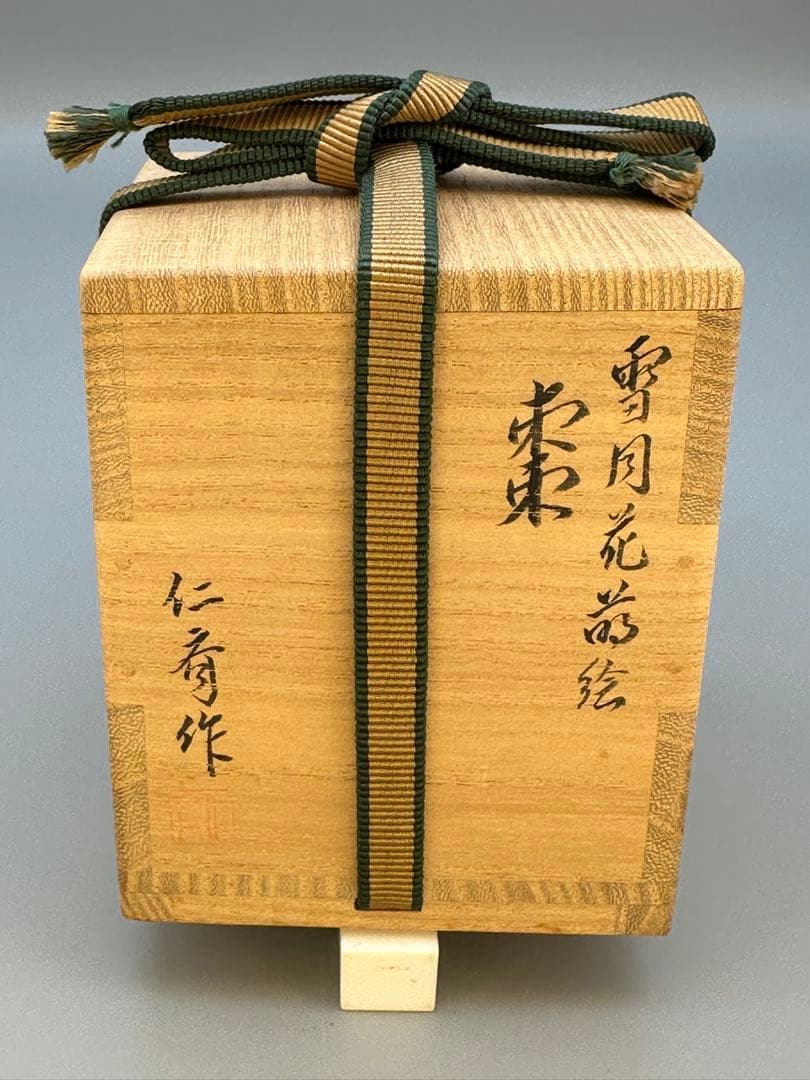 雪月花蒔絵
棗
仁斎作